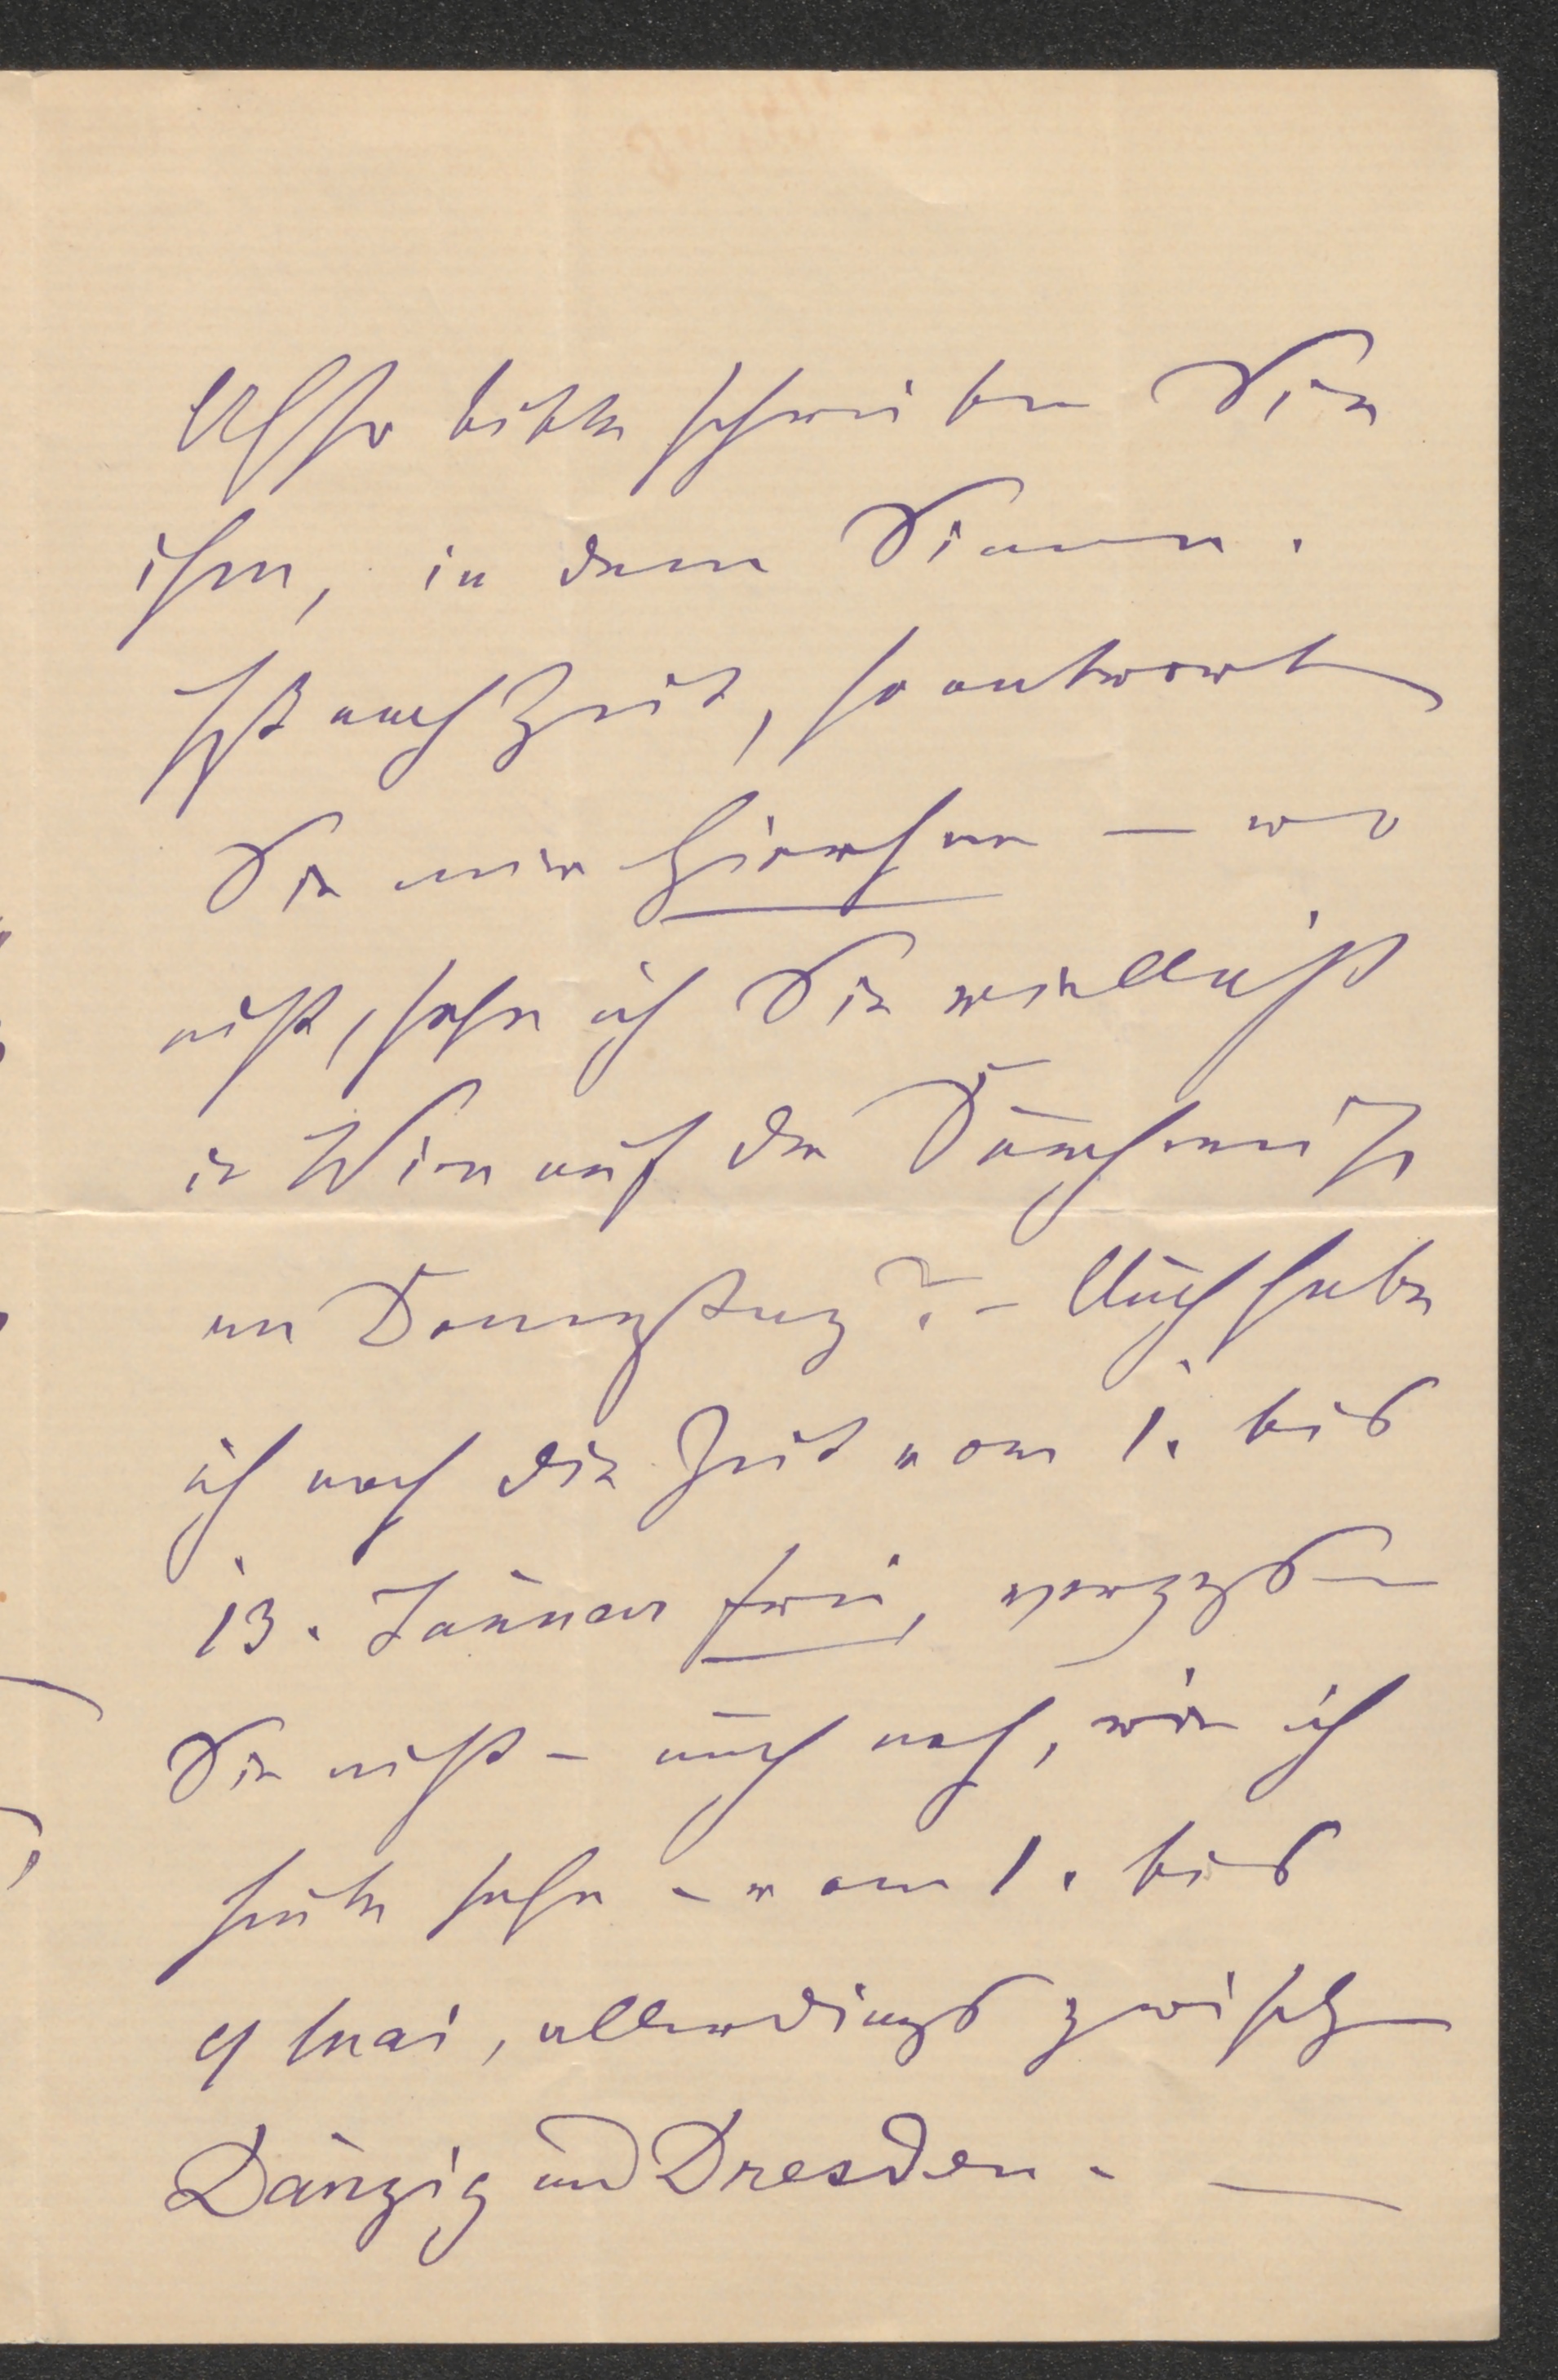 Also bitte schreiben Sie
ihm, in dem Sinne.
Ist noch Zeit, so antworten
Sie mir hierher — wo
nicht, sehe ich Sie vielleicht
in Wien auf der Durchreise
am Donnerstag? – Auch habe
ich noch die Zeit vom 1. bis
13. Januar frei, vergessen
Sie nicht – auch noch, wie ich
heute sehe – vom 1. bis
9 Mai, allerdings zwischen
Danzig und Dresden. —